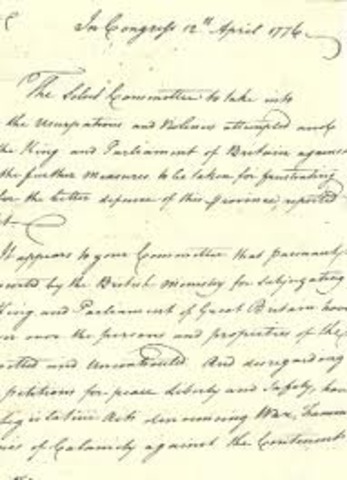 In Congress 12th April 1776
The Select Committee to take into
the Usurpations and Violences attempted and
the King and Parliament of Britain against
the further measures to be taken for frustrating
for the better defence of this Province, reported
It appears to your Committee that pursuant
by the British Ministry for subjugating
King and Parliament of Great Britain have
over the persons and properties of the
and Uncontrouled And disregarding
petitions for peace Liberty and Safety, have
Legislative Acts denouncing War, Famine
of Calamity against the Continent